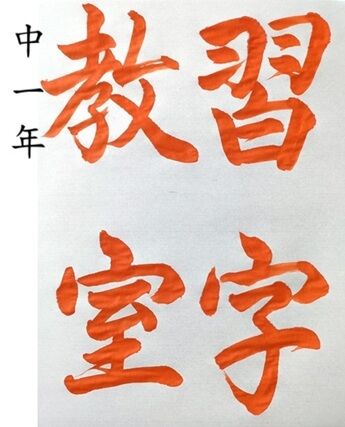 習字
教室
中一年